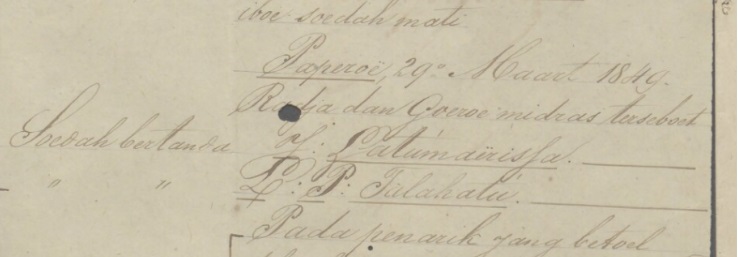 iboe soedah mati
Paperoe, 29º Maart 1849.
Radja dan Goeroe midras terseboet
Soedah bertanda J: Latúmaërissa.
" " L: P: Talahatú.
Pada penarik jang betoel